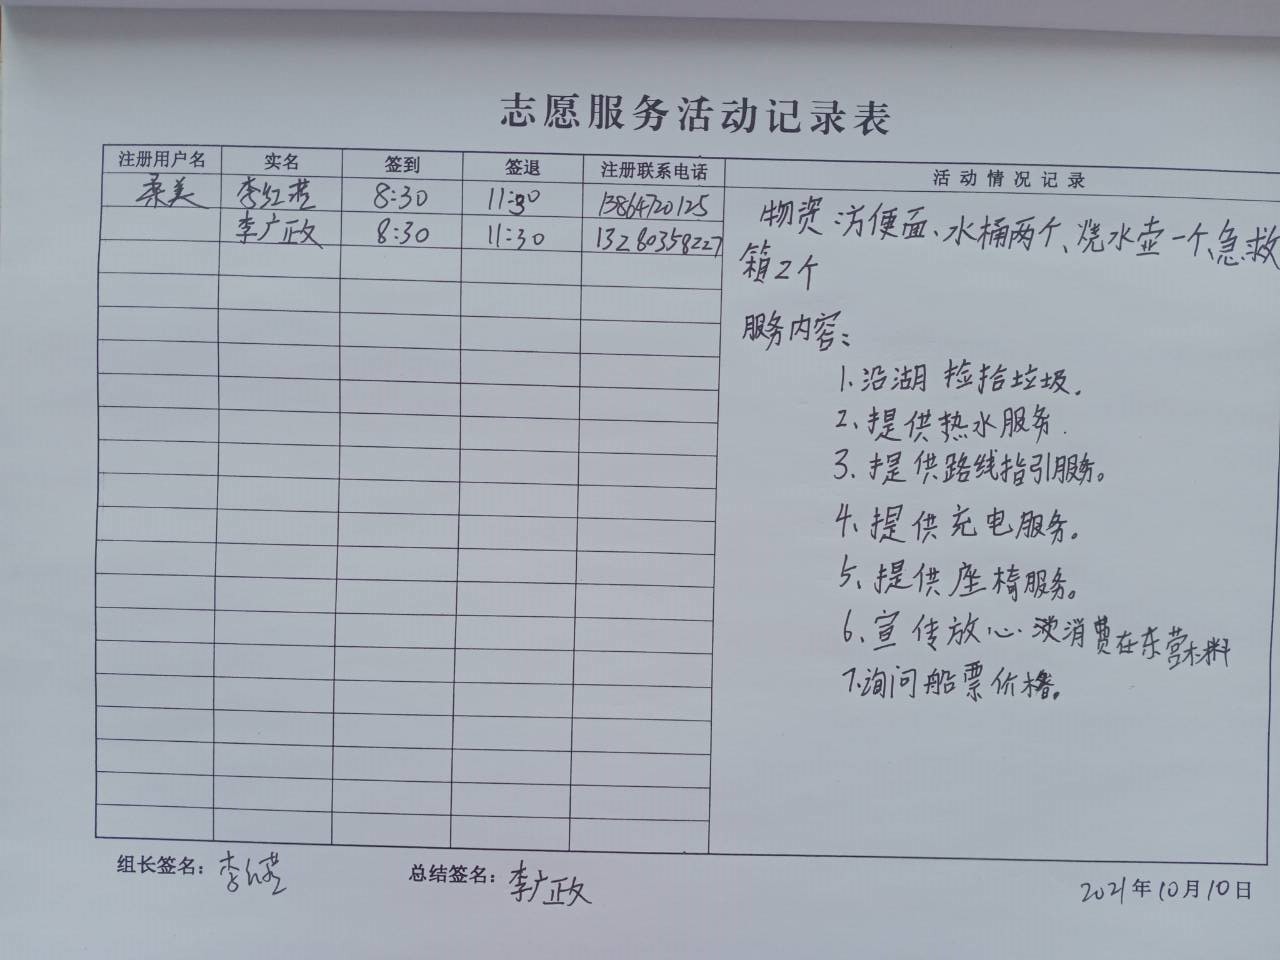 志愿服务活动记录表
注册用户名 实名 签到 签退 注册联系电话 活动情况记录
柔美 李红芸 8:30 11:30 13864720125
李广政 8:30 11:30 13280358227
物资:方便面、水桶两个、烧水壶一个、急救
箱2个
服务内容:
1、沿湖捡拾垃圾.
2、提供热水服务.
3、提供路线指引服务。
4、提供充电服务。
5、提供座椅服务。
6、宣传放心消费在东营
7、询问船票价格。
组长签名:李红芸 总结签名:李广政
2021年10月10日